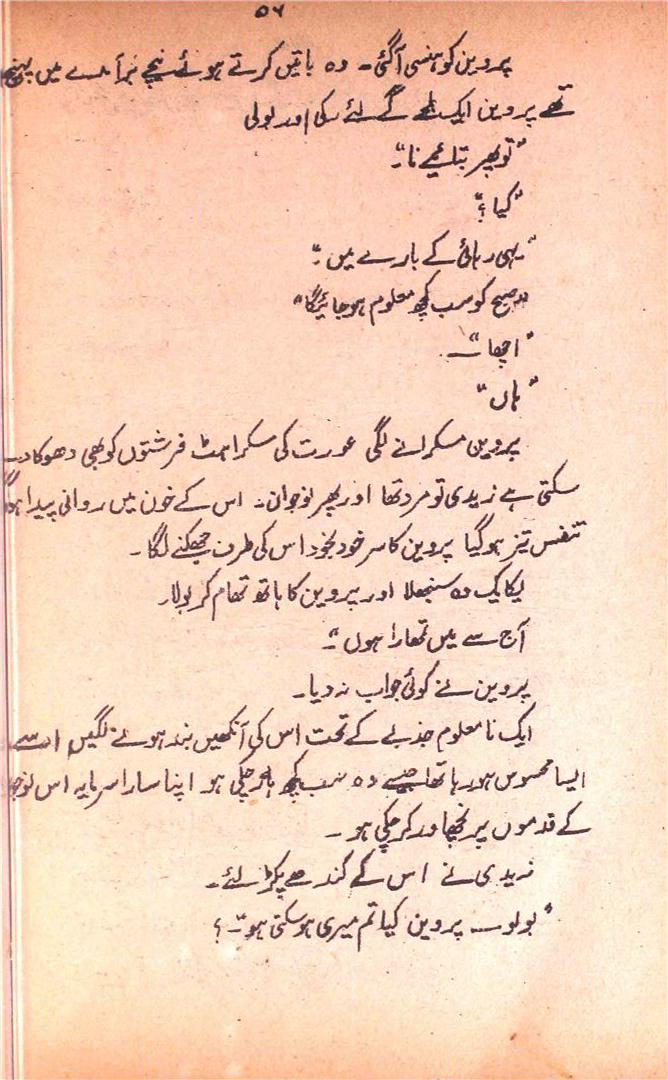 ۵۶
پروین کو ہنسی آگئی۔ وہ باتیں کرتے ہوئے نیچے برآمدے میں پہنچ
تھے پروین ایک لمحے کے لئے رکی اور بولی
"تو پھر بتائیے نا"۔
"کیا؟"
"یہی رہائی کے بارے میں"۔
"صبح کو سب کچھ معلوم ہو جائیگا"
"اچھا"۔
"ہاں"
پروین مسکرانے لگی عورت کی مسکراہٹ فرشتوں کو بھی دھوکا دے
سکتی ہے زیدی تو مرد تھا اور پھر نوجوان۔ اس کے خون میں روانی پیدا ہو
تنفس تیز ہو گیا پروین کا سر خود بخود اس کی طرف جھکنے لگا۔
یکایک وہ سنبھلا اور پروین کا ہاتھ تھام کر بولا۔
آج سے میں تمھارا ہوں"۔
پروین نے کوئی جواب نہ دیا۔
ایک نامعلوم جذبے کے تحت اس کی آنکھیں بند ہونے لگیں اسے
ایسا محسوس ہو رہا تھا جیسے وہ سب کچھ ہار چکی ہو اپنا سارا سرمایہ اس
کے قدموں پر نچھاور کر چکی ہو۔
زیدی نے اس کے کندھے پکڑ لئے۔
"بولو۔ پروین کیا تم میری ہو سکتی ہو"۔؟